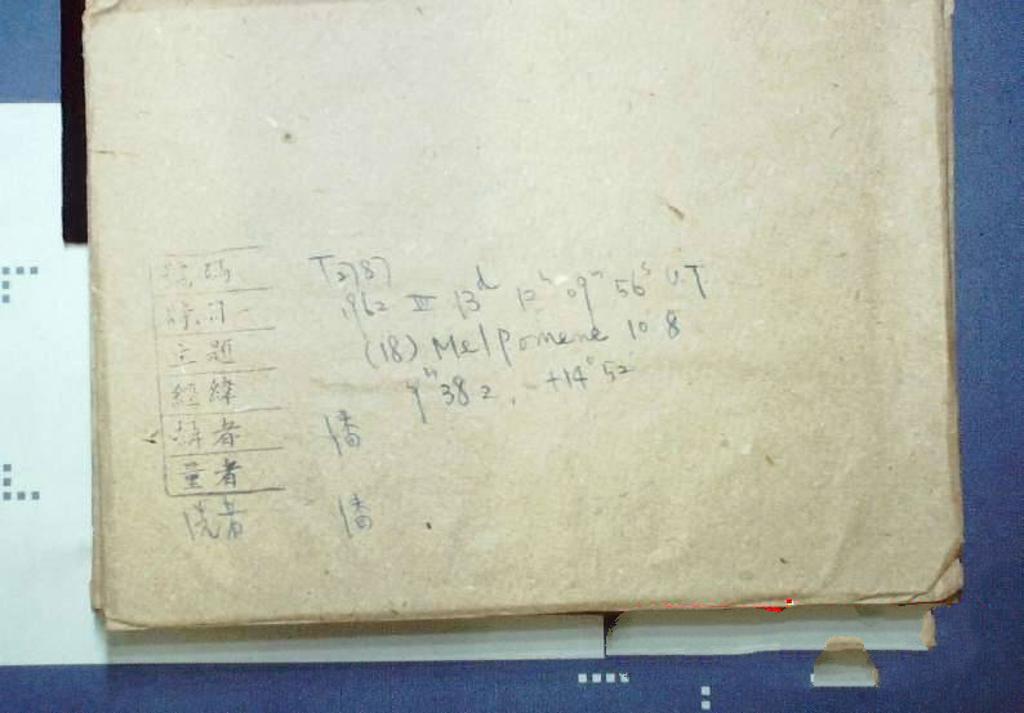 號碼 T2787
時刻 1962 III 13ᵈ 12ʰ 09ᵐ 56ˢ U.T
主題 (18) Melpomene 10.8
經緯 9ʰ38.2, +14°52'
攝者 潘
量者
洗者 潘